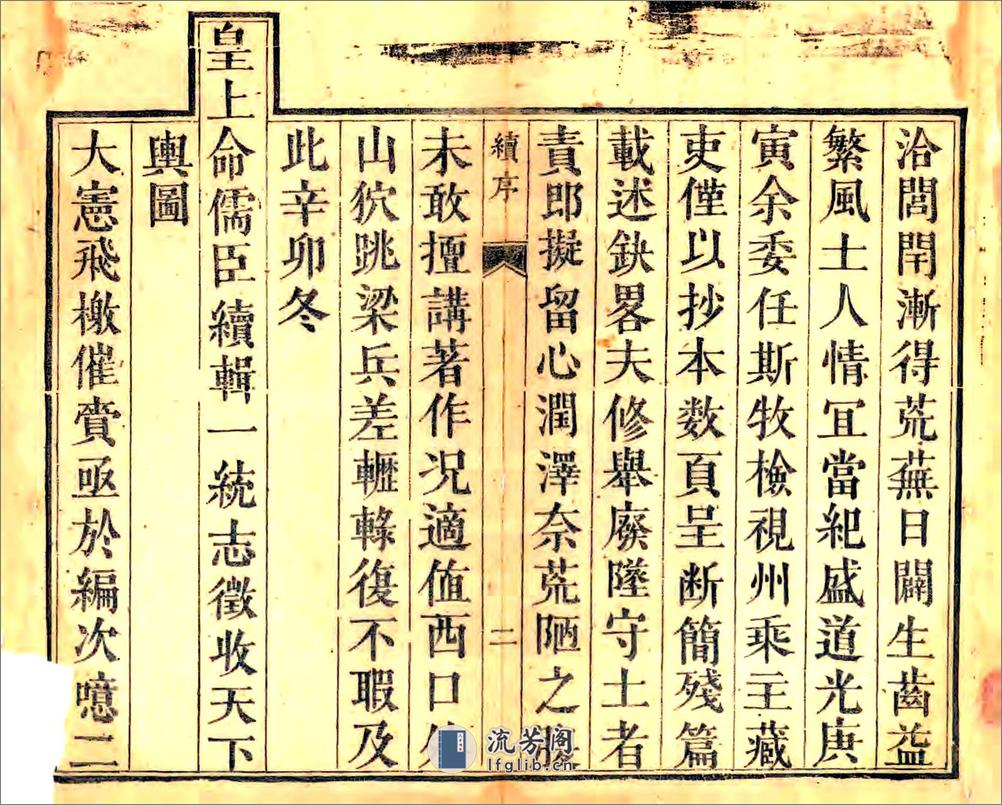 洽閭閈漸得荒蕪日闢生齒益
繁風土人情冝當紀盛道光庚
寅余委任斯牧檢視州乘主藏
吏僅以抄本数頁呈断簡殘篇
載述鈌畧夫修舉廢墜守土者
責即擬留心潤澤奈荒陋之
續序
二
未敢擅講著作况適值西口
山狖跳梁兵差轣轆復不暇及
此辛卯冬
皇上命儒臣續輯一統志徵收天下
輿圖
大憲飛檄催賫亟於編次噫二
流芳阁
lfglib.cn